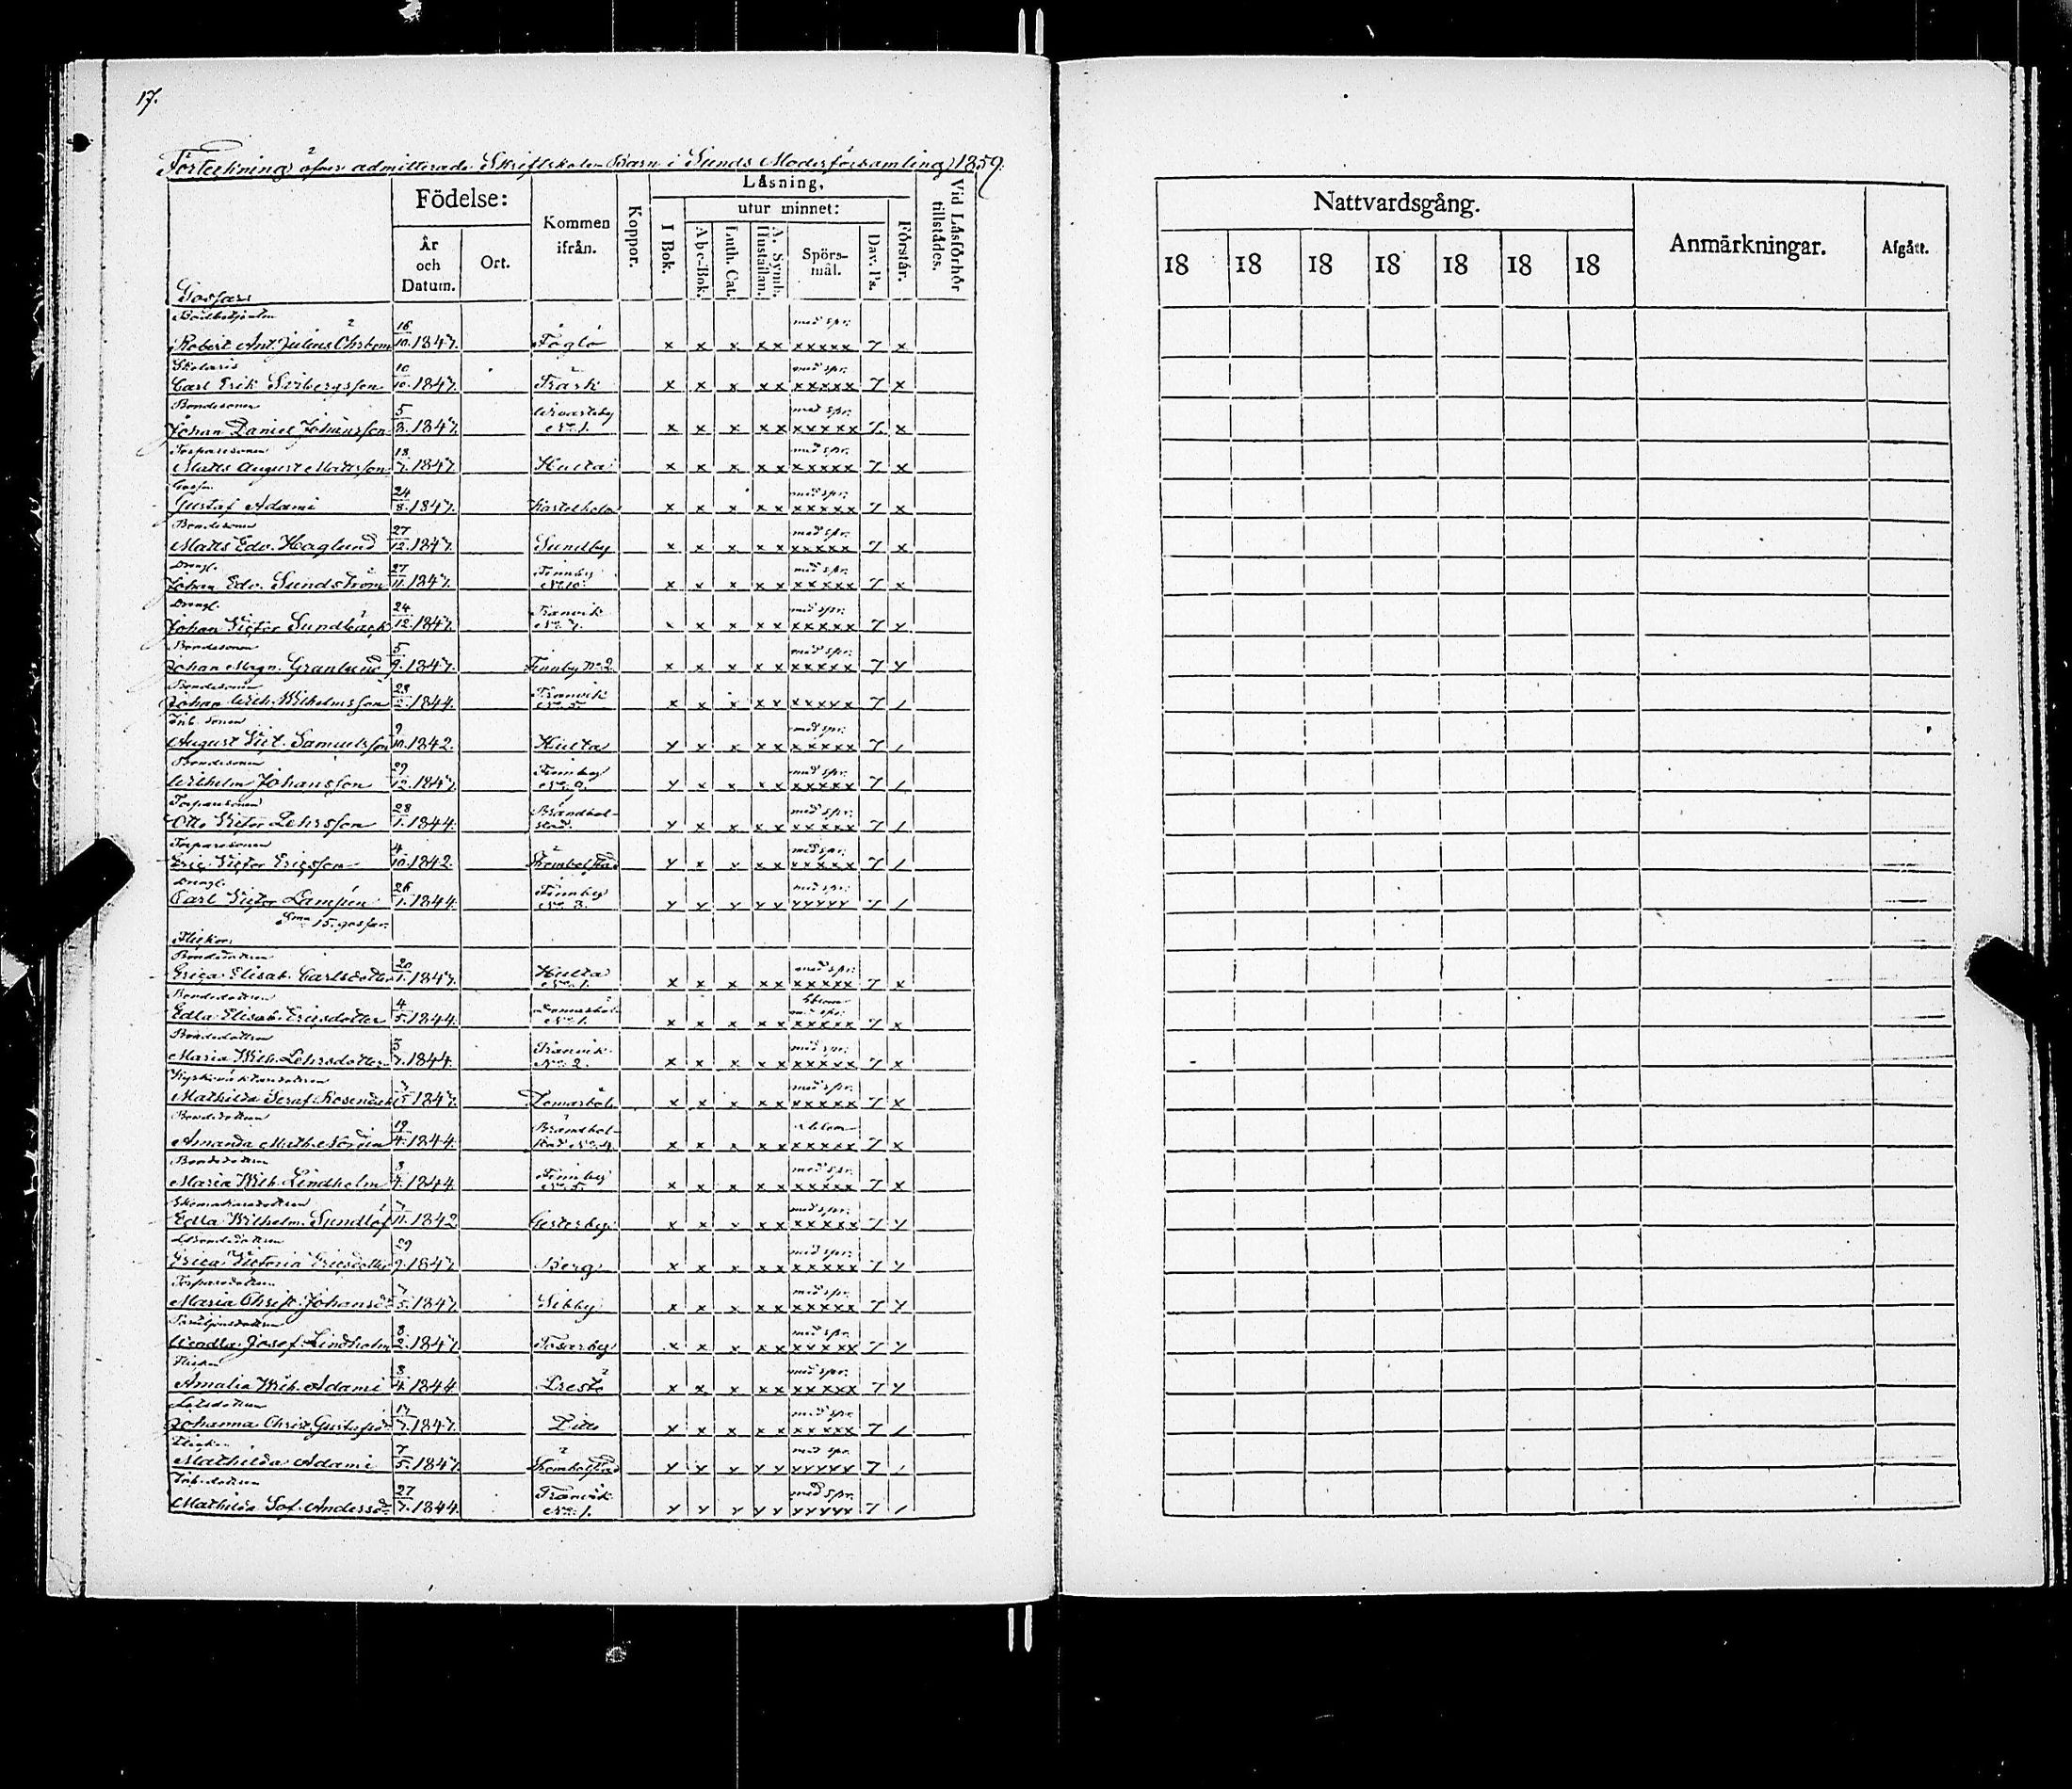 17.
Förteckning öfver admitterade Skriftskole-Barn i Sunds Moderförsamling 1859.
Födelse:
År och Datum.
Ort.
Kommen ifrån.
Koppor.
Låsning,
I Bok.
utur minnet:
Abc-Bok.
Luth. Cat.
A. Symb. Hustaflan.
Spörs-mål.
Dav. Ps.
Förstår.
Vid Låsförhör tillstådes.
Gossar:
Robert Ant. Julius 16/10. 1847. Föglö x x x x x med spr. xxxxx 7 x
Skolaris
Carl Erik 10/10. 1847. Träsk x x x x x med spr. xxxxx 7 x
Bondesonen
Johan Daniel Johansson 5/3. 1847. Wivastby No 1. x x x x x med spr. xxxxx 7 x
Torparesonen
Matts August Mattsson 13/7. 1847. Hulta x x x x x med spr. xxxxx 7 x
Gossen
Gustaf Adami 24/8. 1847. Kastelholm x x x x x med spr. xxxxx 7 x
Bondesonen
Matts Edv. Haglund 27/12. 1847. Sundby x x x x x med spr. xxxxx 7 x
Drengl.
Johan Edv. Sundström 27/11. 1847. Finnby No 10. x x x x x med spr. xxxxx 7 x
Drengl.
Johan Victor Sundbäck 24/12. 1847. Tranvik No 7. x x x x x med spr. xxxxx 7 x
Bondesonen
Johan Magn. Granlund 5/9. 1847. Finnby No 2 x x x x x med spr. xxxxx 7 x
Bondesonen
Johan Wilh. Wilhelmsson 23/2. 1844. Tranvik No 5. x x x x x xxxxx 7 /
Inh. sonen
August Vict. Samuelsson 9/10. 1842. Hulta x x x x x med spr. xxxxx 7 /
Bondesonen
Wilhelm Johansson 29/12. 1847. Finnby No 9. x x x x x med spr. xxxxx 7 /
Torparesonen
Otto Victor Lehrsson 28/1. 1844. Brändbol-stad. x x x x x med spr. xxxxx 7 /
Torparesonen
Eric Victor Ericsson 4/10. 1842. Strömbolstad x x x x x med spr. xxxxx 7 /
Drengl.
Carl Victor Lampén 26/1. 1844. Finnby No 3. x x x x x med spr. xxxxx 7 /
S:ma 15. gossar.
Flickor:
Bondedottren
Erica Elisab. Carlsdotter 20/1. 1847. Hulta No 1. x x x x x med spr. xxxxx 7 x
Bondedottren
Edla Elisab. Ericsdotter 4/5. 1844. No 1. x x x x x med spr. xxxxx 7 x
Bondedottren
Maria Wilh. Lehrsdotter 3/7. 1844. Tranvik No 2. x x x x x med spr. xxxxx 7 x
Mathilda Seraf. 1847. Domarböle x x x x x med spr. xxxxx 7 x
Bondedottren
Amanda Math. Nordén 19/4. 1844. Brändbol-stad No 4. x x x x x xxxxx 7 x
Bondedottren
Maria Wilh. Lindholm 1844 Finnby No 5. x x x x x med spr. xxxxx 7 x
Skomakaredottren
Edla Wilhelm. Sundlöf 7/11. 1842 Gesterby x x x x x med spr. xxxxx 7 x
Bondedottren
Erica Victoria Ericsdotter 29/9. 1847. Berg x x x x x med spr. xxxxx 7 x
Torparedottren
Maria Christ. Johansd:r 7/5. 1847 Sibby x x x x x med spr. xxxxx 7 x
Wendla Josef. Lindholm 8/2. 1847 Tosarby x x x x x med spr. xxxxx 7 x
Flickan
Amalia Wilh. Adami 8/4. 1844 Lresto x x x x x med spr. xxxxx 7 x
Johanna Christ. Gustafsd:r 17/7. 1847. Ditto x x x x x med spr. xxxxx 7 /
Flickan
Mathilda Adami 7/5. 1847 Strömbolstad x x x x x med spr. xxxxx 7 /
Inh. dottren
Mathilda Sof. Andersd:r 27/7. 1844. Tranvik No 1. x x x x x med spr. xxxxx 7 /
Nattvardsgång.
18 18 18 18 18 18 18
Anmärkningar.
Afgått.